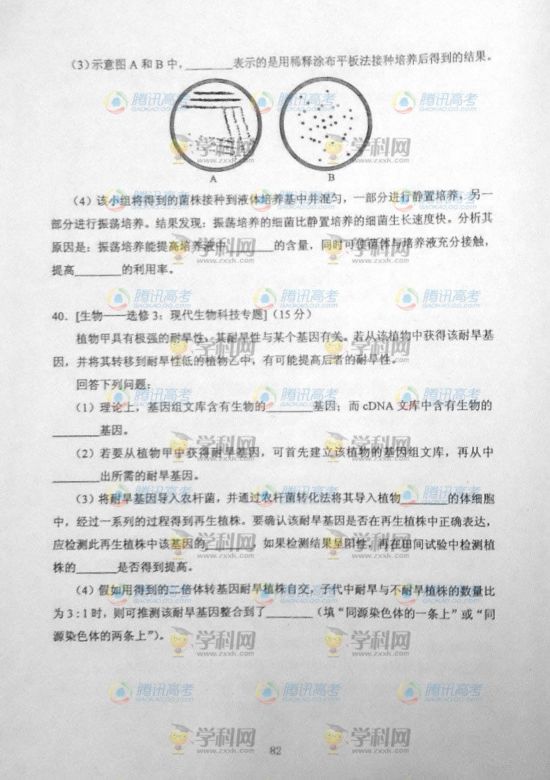 (3)示意图 A 和 B 中，________表示的是用稀释涂布平板法接种培养后得到的结果。
A B
(4)该小组将得到的菌株接种到液体培养基中并混匀，一部分进行静置培养，另一
部分进行振荡培养。结果发现：振荡培养的细菌比静置培养的细菌生长速度快。分析其
原因是：振荡培养能提高培养液中________的含量，同时可使菌体与培养液充分接触，
提高________的利用率。
40．[生物——选修 3：现代生物科技专题](15 分)
植物甲具有极强的耐旱性，其耐旱性与某个基因有关。若从该植物中获得该耐旱基
因，并将其转移到耐旱性低的植物乙中，有可能提高后者的耐旱性。
回答下列问题：
(1)理论上，基因组文库含有生物的________基因；而 cDNA 文库中含有生物的
________基因。
(2)若要从植物甲中获得耐旱基因，可首先建立该植物的基因组文库，再从中
________出所需的耐旱基因。
(3)将耐旱基因导入农杆菌，并通过农杆菌转化法将其导入植物________的体细胞
中，经过一系列的过程得到再生植株。要确认该耐旱基因是否在再生植株中正确表达，
应检测此再生植株中该基因的________，如果检测结果呈阳性，再在田间试验中检测植
株的________是否得到提高。
(4)假如用得到的二倍体转基因耐旱植株自交，子代中耐旱与不耐旱植株的数量比
为 3∶1 时，则可推测该耐旱基因整合到了________（填“同源染色体的一条上”或“同
源染色体的两条上”）。
82
腾讯高考
GAOKAO.QQ.COM
学科网
www.zxxk.com